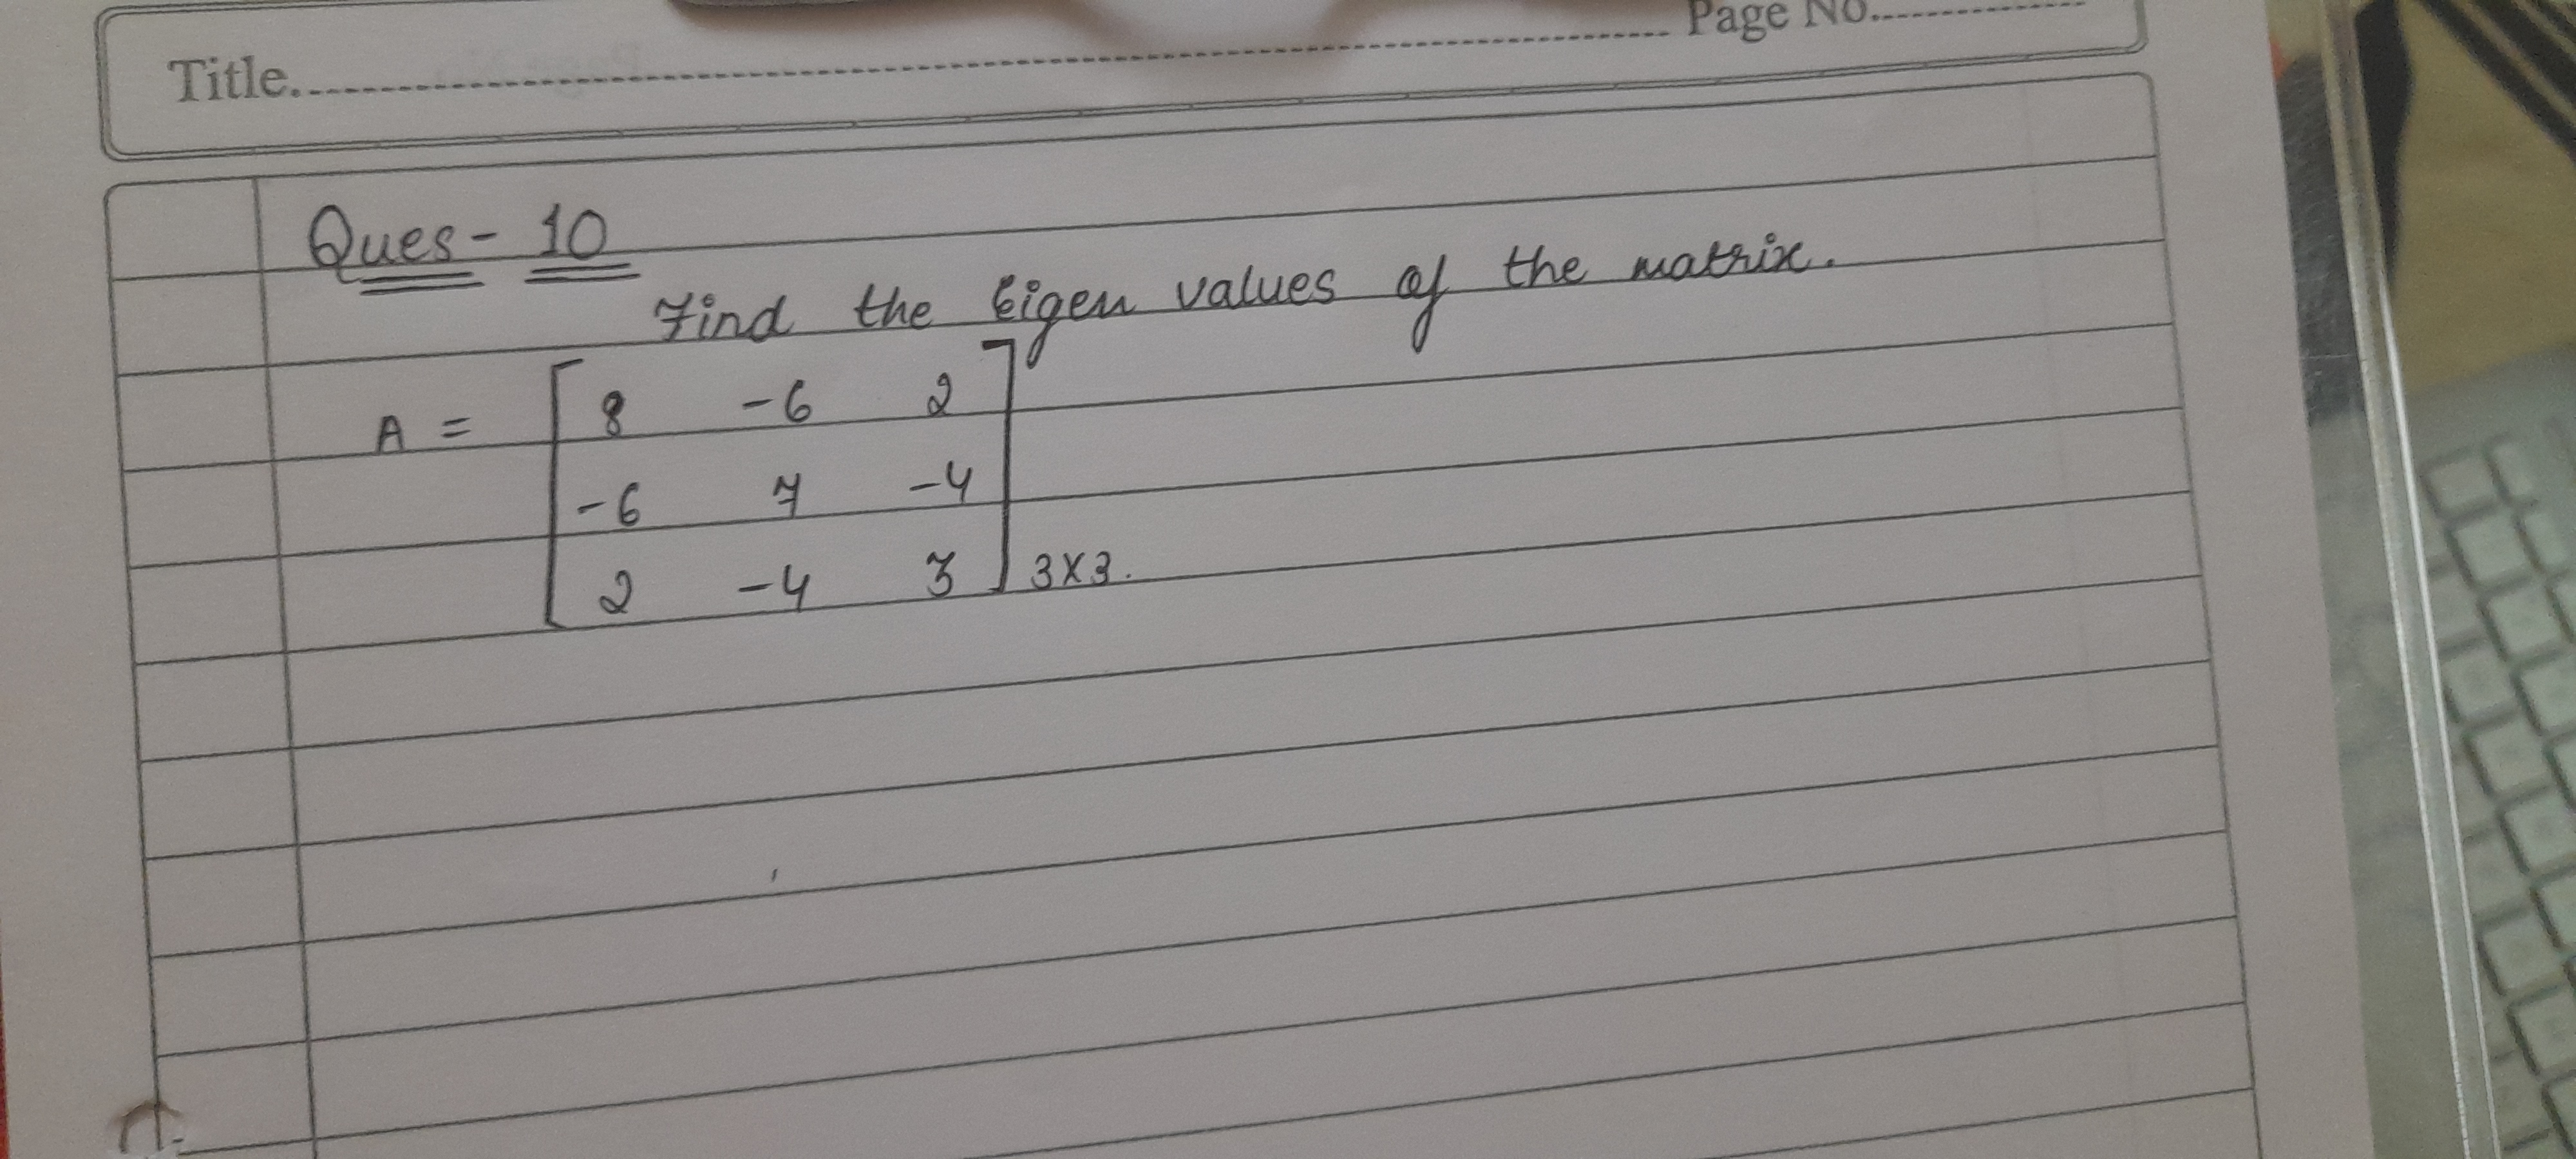 Title.
Page No.
Ques - 10
Find the Eigen values of the matrix.
A = [ 8 -6 2
-6 7 -4
2 -4 3 ] 3x3.